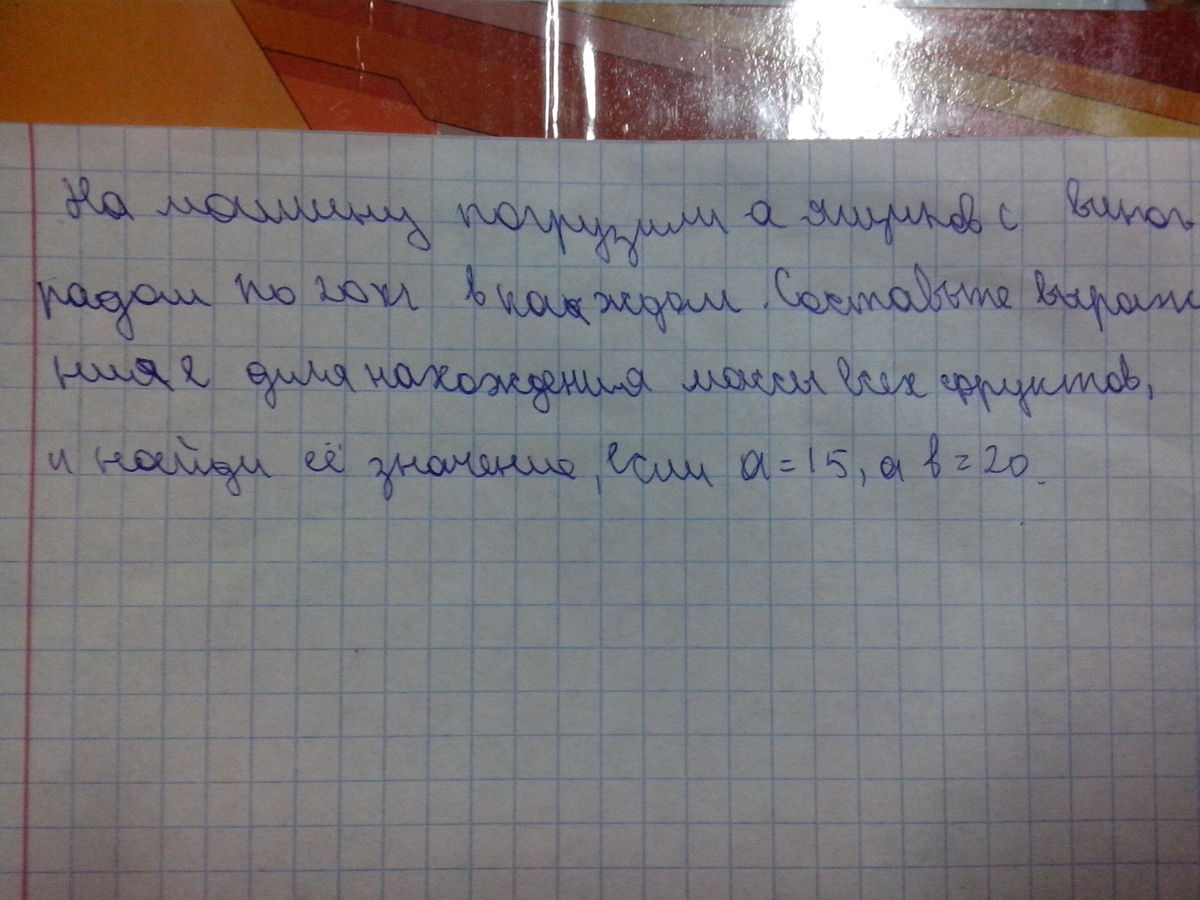 На машину погрузили а ящиков с виног
радом по 20кг в каждом. Составьте выраже
ния е для нахождения массы всех фруктов,
и найди её значение, если a=15, а b=20.